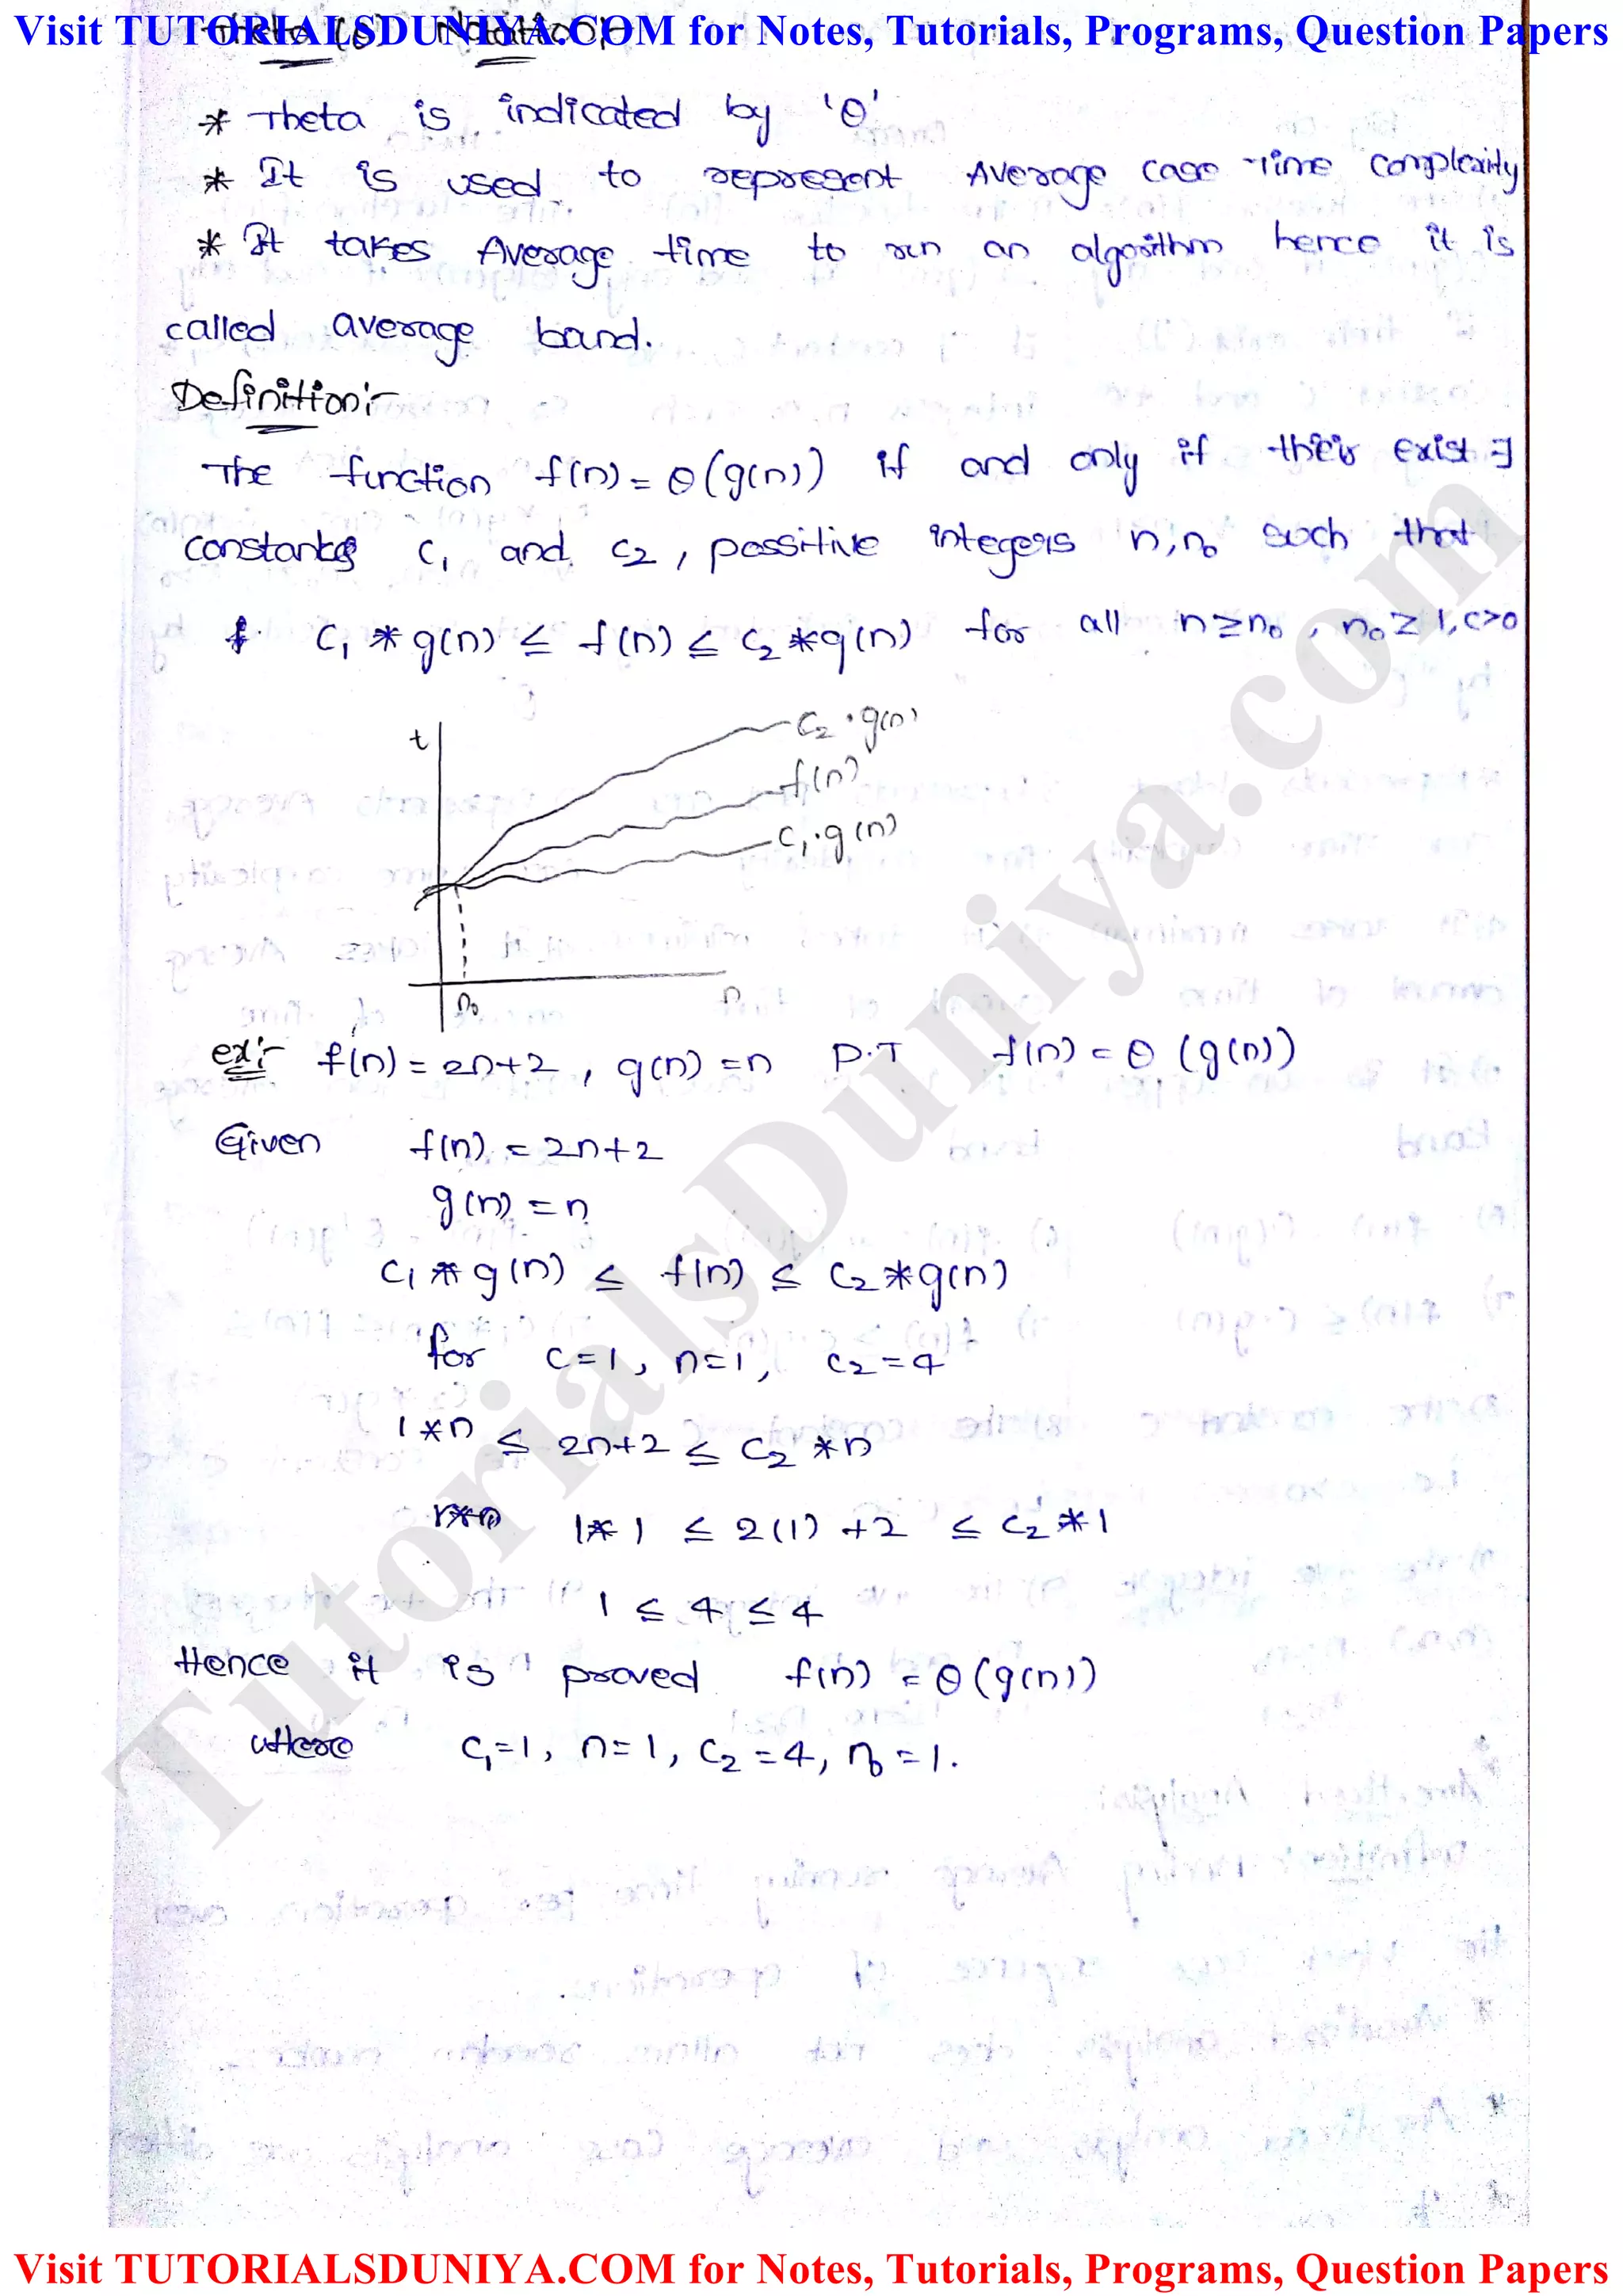 Visit TUTORIALSDUNIYA.COM for Notes, Tutorials, Programs, Question Papers
Theta (θ) Notation
* Theta is indicated by 'θ'
* It is used to represent Average Case Time Complexity
* It takes Average time to run an algorithm hence it is
called average bound.
Definition:-
The function f(n) = θ(g(n)) if and only if their exist ∃
constants C1 and C2, possitive integers n, n0 such that
C1 * g(n) ≤ f(n) ≤ C2 * g(n) for all n ≥ n0, n0 ≥ 1, c>0
t
C2 · g(n)
f(n)
C1 · g(n)
n0 n
ex:- f(n) = 2n+2, g(n) = n P.T f(n) = θ (g(n))
Given f(n) = 2n+2
g(n) = n
C1 * g(n) ≤ f(n) ≤ C2 * g(n)
for C=1, n=1, C2=4
1*n ≤ 2n+2 ≤ C2 * n
1*1 ≤ 2(1)+2 ≤ C2 * 1
1 ≤ 4 ≤ 4
Hence it is proved f(n) = θ(g(n))
where C1=1, n=1, C2=4, n0=1.
TutorialsDuniya.com
Visit TUTORIALSDUNIYA.COM for Notes, Tutorials, Programs, Question Papers